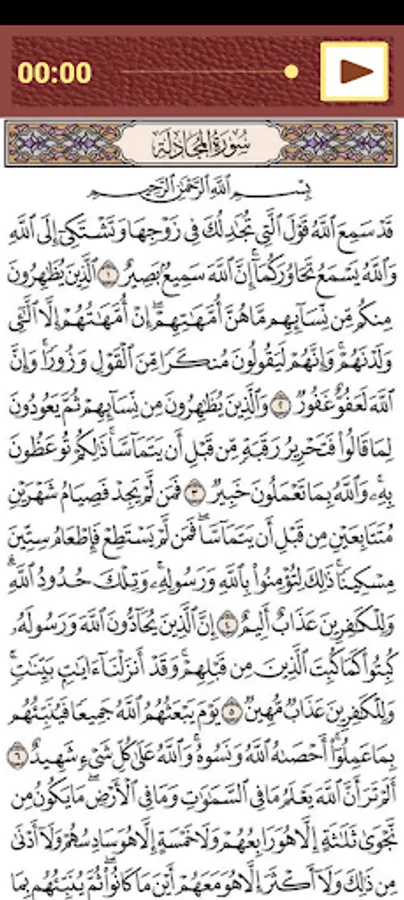 00:00
سُورَةُ الْمُجَادِلَةِ
بِسْمِ اللَّهِ الرَّحْمَٰنِ الرَّحِيمِ
قَدْ سَمِعَ اللَّهُ قَوْلَ الَّتِي تُجَادِلُكَ فِي زَوْجِهَا وَتَشْتَكِي إِلَى اللَّهِ
وَاللَّهُ يَسْمَعُ تَحَاوُرَكُمَا ۚ إِنَّ اللَّهَ سَمِيعٌ بَصِيرٌ ١ الَّذِينَ يُظَاهِرُونَ
مِنكُم مِّن نِّسَائِهِم مَّا هُنَّ أُمَّهَاتِهِمْ ۖ إِنْ أُمَّهَاتُهُمْ إِلَّا اللَّائِي
وَلَدْنَهُمْ ۚ وَإِنَّهُمْ لَيَقُولُونَ مُنكَرًا مِّنَ الْقَوْلِ وَزُورًا ۚ وَإِنَّ
اللَّهَ لَعَفُوٌّ غَفُورٌ ٢ وَالَّذِينَ يُظَاهِرُونَ مِن نِّسَائِهِمْ ثُمَّ يَعُودُونَ
لِمَا قَالُوا فَتَحْرِيرُ رَقَبَةٍ مِّن قَبْلِ أَن يَتَمَاسَّا ۚ ذَٰلِكُمْ تُوعَظُونَ
بِهِ ۚ وَاللَّهُ بِمَا تَعْمَلُونَ خَبِيرٌ ٣ فَمَن لَّمْ يَجِدْ فَصِيَامُ شَهْرَيْنِ
مُتَتَابِعَيْنِ مِن قَبْلِ أَن يَتَمَاسَّا ۖ فَمَن لَّمْ يَسْتَطِعْ فَإِطْعَامُ سِتِّينَ
مِسْكِينًا ۚ ذَٰلِكَ لِتُؤْمِنُوا بِاللَّهِ وَرَسُولِهِ ۚ وَتِلْكَ حُدُودُ اللَّهِ ۗ
وَلِلْكَافِرِينَ عَذَابٌ أَلِيمٌ ٤ إِنَّ الَّذِينَ يُحَادُّونَ اللَّهَ وَرَسُولَهُ
كُبِتُوا كَمَا كُبِتَ الَّذِينَ مِن قَبْلِهِمْ ۚ وَقَدْ أَنزَلْنَا آيَاتٍ بَيِّنَاتٍ ۚ
وَلِلْكَافِرِينَ عَذَابٌ مُّهِينٌ ٥ يَوْمَ يَبْعَثُهُمُ اللَّهُ جَمِيعًا فَيُنَبِّئُهُم
بِمَا عَمِلُوا ۚ أَحْصَاهُ اللَّهُ وَنَسُوهُ ۚ وَاللَّهُ عَلَىٰ كُلِّ شَيْءٍ شَهِيدٌ ٦
أَلَمْ تَرَ أَنَّ اللَّهَ يَعْلَمُ مَا فِي السَّمَاوَاتِ وَمَا فِي الْأَرْضِ ۖ مَا يَكُونُ مِن
نَّجْوَىٰ ثَلَاثَةٍ إِلَّا هُوَ رَابِعُهُمْ وَلَا خَمْسَةٍ إِلَّا هُوَ سَادِسُهُمْ وَلَا أَدْنَىٰ
مِن ذَٰلِكَ وَلَا أَكْثَرَ إِلَّا هُوَ مَعَهُمْ أَيْنَ مَا كَانُوا ۖ ثُمَّ يُنَبِّئُهُم بِمَا